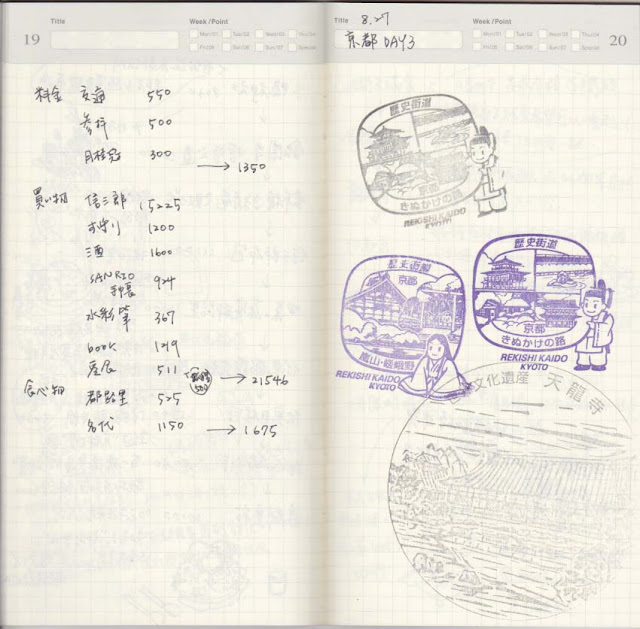 19
Title
Week / Point
Mon/01 Tue/02 Wed/03 Thu/04
Fri/05 Sat/06 Sun/07 Special
料金 交通 550
参拝 500
月桂冠 300
→ 1350
買い物 信三郎 15225
お守り 1200
酒 1600
SANRIO
手帳 924
水彩筆 367
book 1219
511
→ 21546
食べ物 都路里 525
名代 1150 → 1675
Title 8.27
京都 DAY3
Week / Point
Mon/01 Tue/02 Wed/03 Thu/04
Fri/05 Sat/06 Sun/07 Special
20
歴史街道
京都
きぬかけの路
REKISHI KAIDO
KYOTO
歴史街道
京都
嵐山・嵯峨野
REKISHI KAIDO
KYOTO
歴史街道
京都
きぬかけの路
REKISHI KAIDO
KYOTO
文化遺産 天龍寺